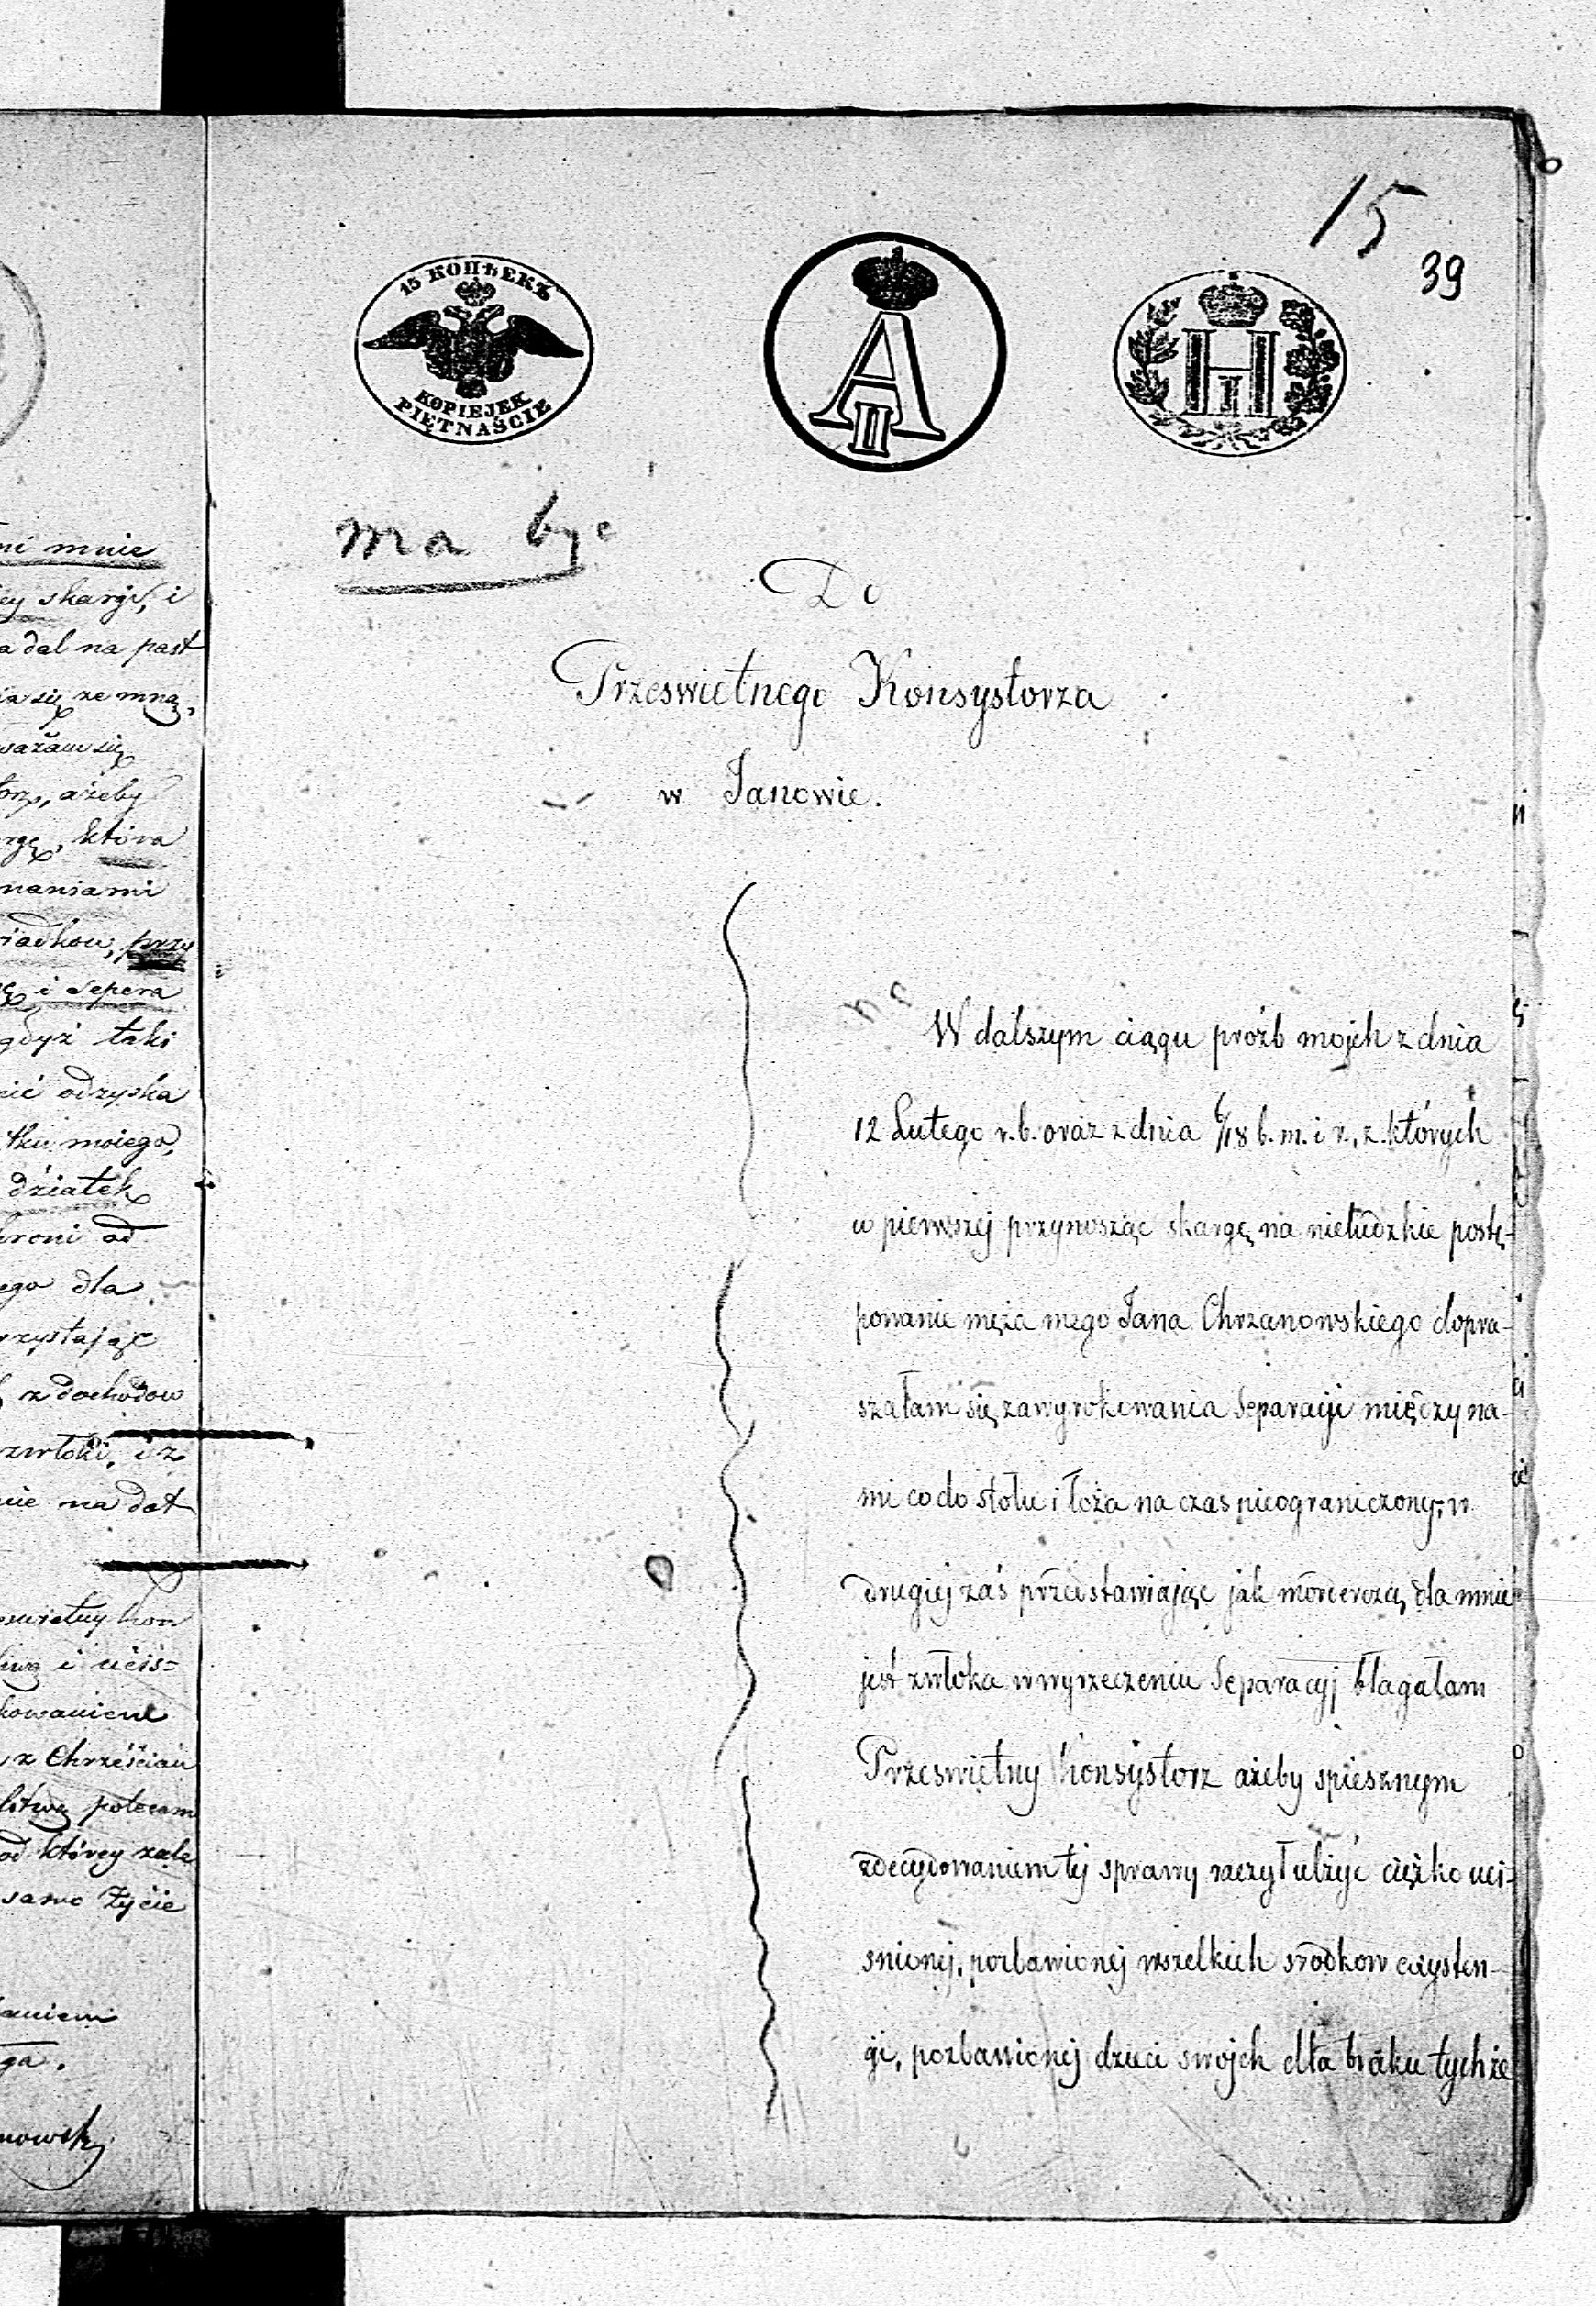 ni mnie
cy skargę, i
a dal na past
ia się ze mną,
ważam się
torz, ażeby
rgę, która
naniami
iadkow, przy
ę i Sepera
gdyż taki
cić odzyska
tku moiego,
dziatek
hroni od
ego dla
rzystając
z dochodow
zwłoki, i z
nie na dat
oswietny kon
liwą i uciś=
kowaniem
z Chrześcian
litwę polecam
od którey zale
samo Życie
aniem
ga.
nowsky
15
39
15 КОПѢЕКЪ
KOPIEJEK
PIĘTNAŚCIE
A
II
H
I
ma byc
Do
Przeswietnego Konsystorza
w Janowie.
W dalszym ciągu proźb mojch z dnia
12 Lutego r. b. oraz z dnia 6/18 b. m. i r., z których
w pierwszej przynosząc skargę na nieludzkie postę-
powanie męża mego Jana Chrzanowskiego dopra-
szałam się zawyrokowania Separacji między na-
mi co do stołu i łoża na czas nieograniczony, w
drugiej zaś przedstawiając jak mordercza dla mnie
jest zwłoka w wyrzeczeniu Separacyj błagałam
Przeswietny Konsystorz ażeby spiesznym
zdecydowaniem tej sprawy raczył ulżyć ciężko uci-
snionej, pozbawionej wszelkich srodkow exysten-
gi, pozbawionej dzieci swojch dla braku tychże